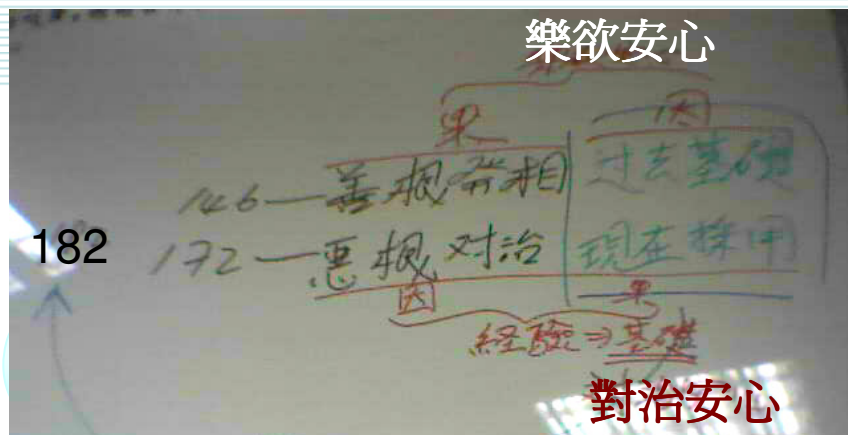 樂欲安心
果 因
146—善根發相 过去基礎
182 172—惡根对治 現在採用
因 果
経驗→基礎
對治安心